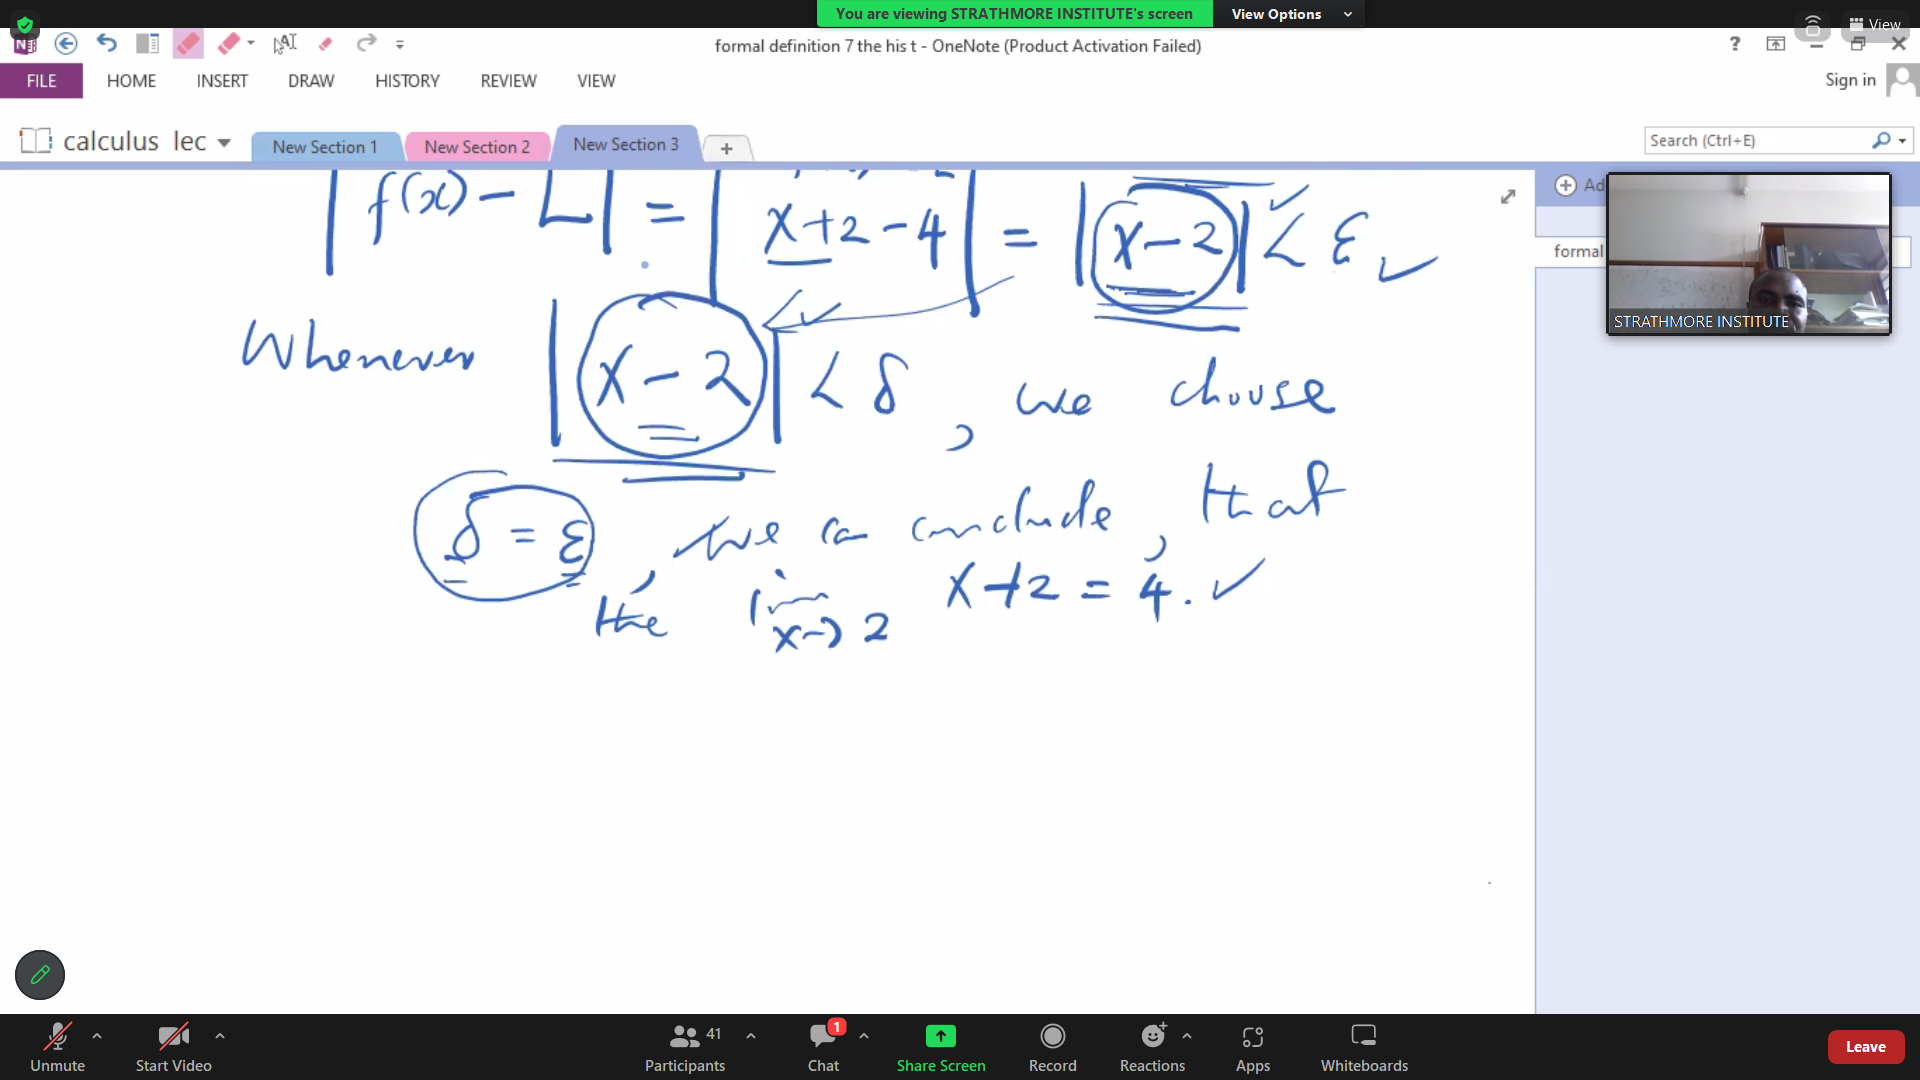 You are viewing STRATHMORE INSTITUTE's screen View Options
View
formal definition 7 the his t - OneNote (Product Activation Failed)
?
FILE HOME INSERT DRAW HISTORY REVIEW VIEW
Sign in
calculus lec New Section 1 New Section 2 New Section 3 +
Search (Ctrl+E)
Ad
formal
STRATHMORE INSTITUTE
|f(x) - L| = |x+2-4| = |x-2| < ε
Whenever |x-2| < δ, we choose
δ = ε, we can conclude, that
the lim x+2 = 4.
x→2
Unmute Start Video Participants 41 Chat 1 Share Screen Record Reactions Apps Whiteboards Leave